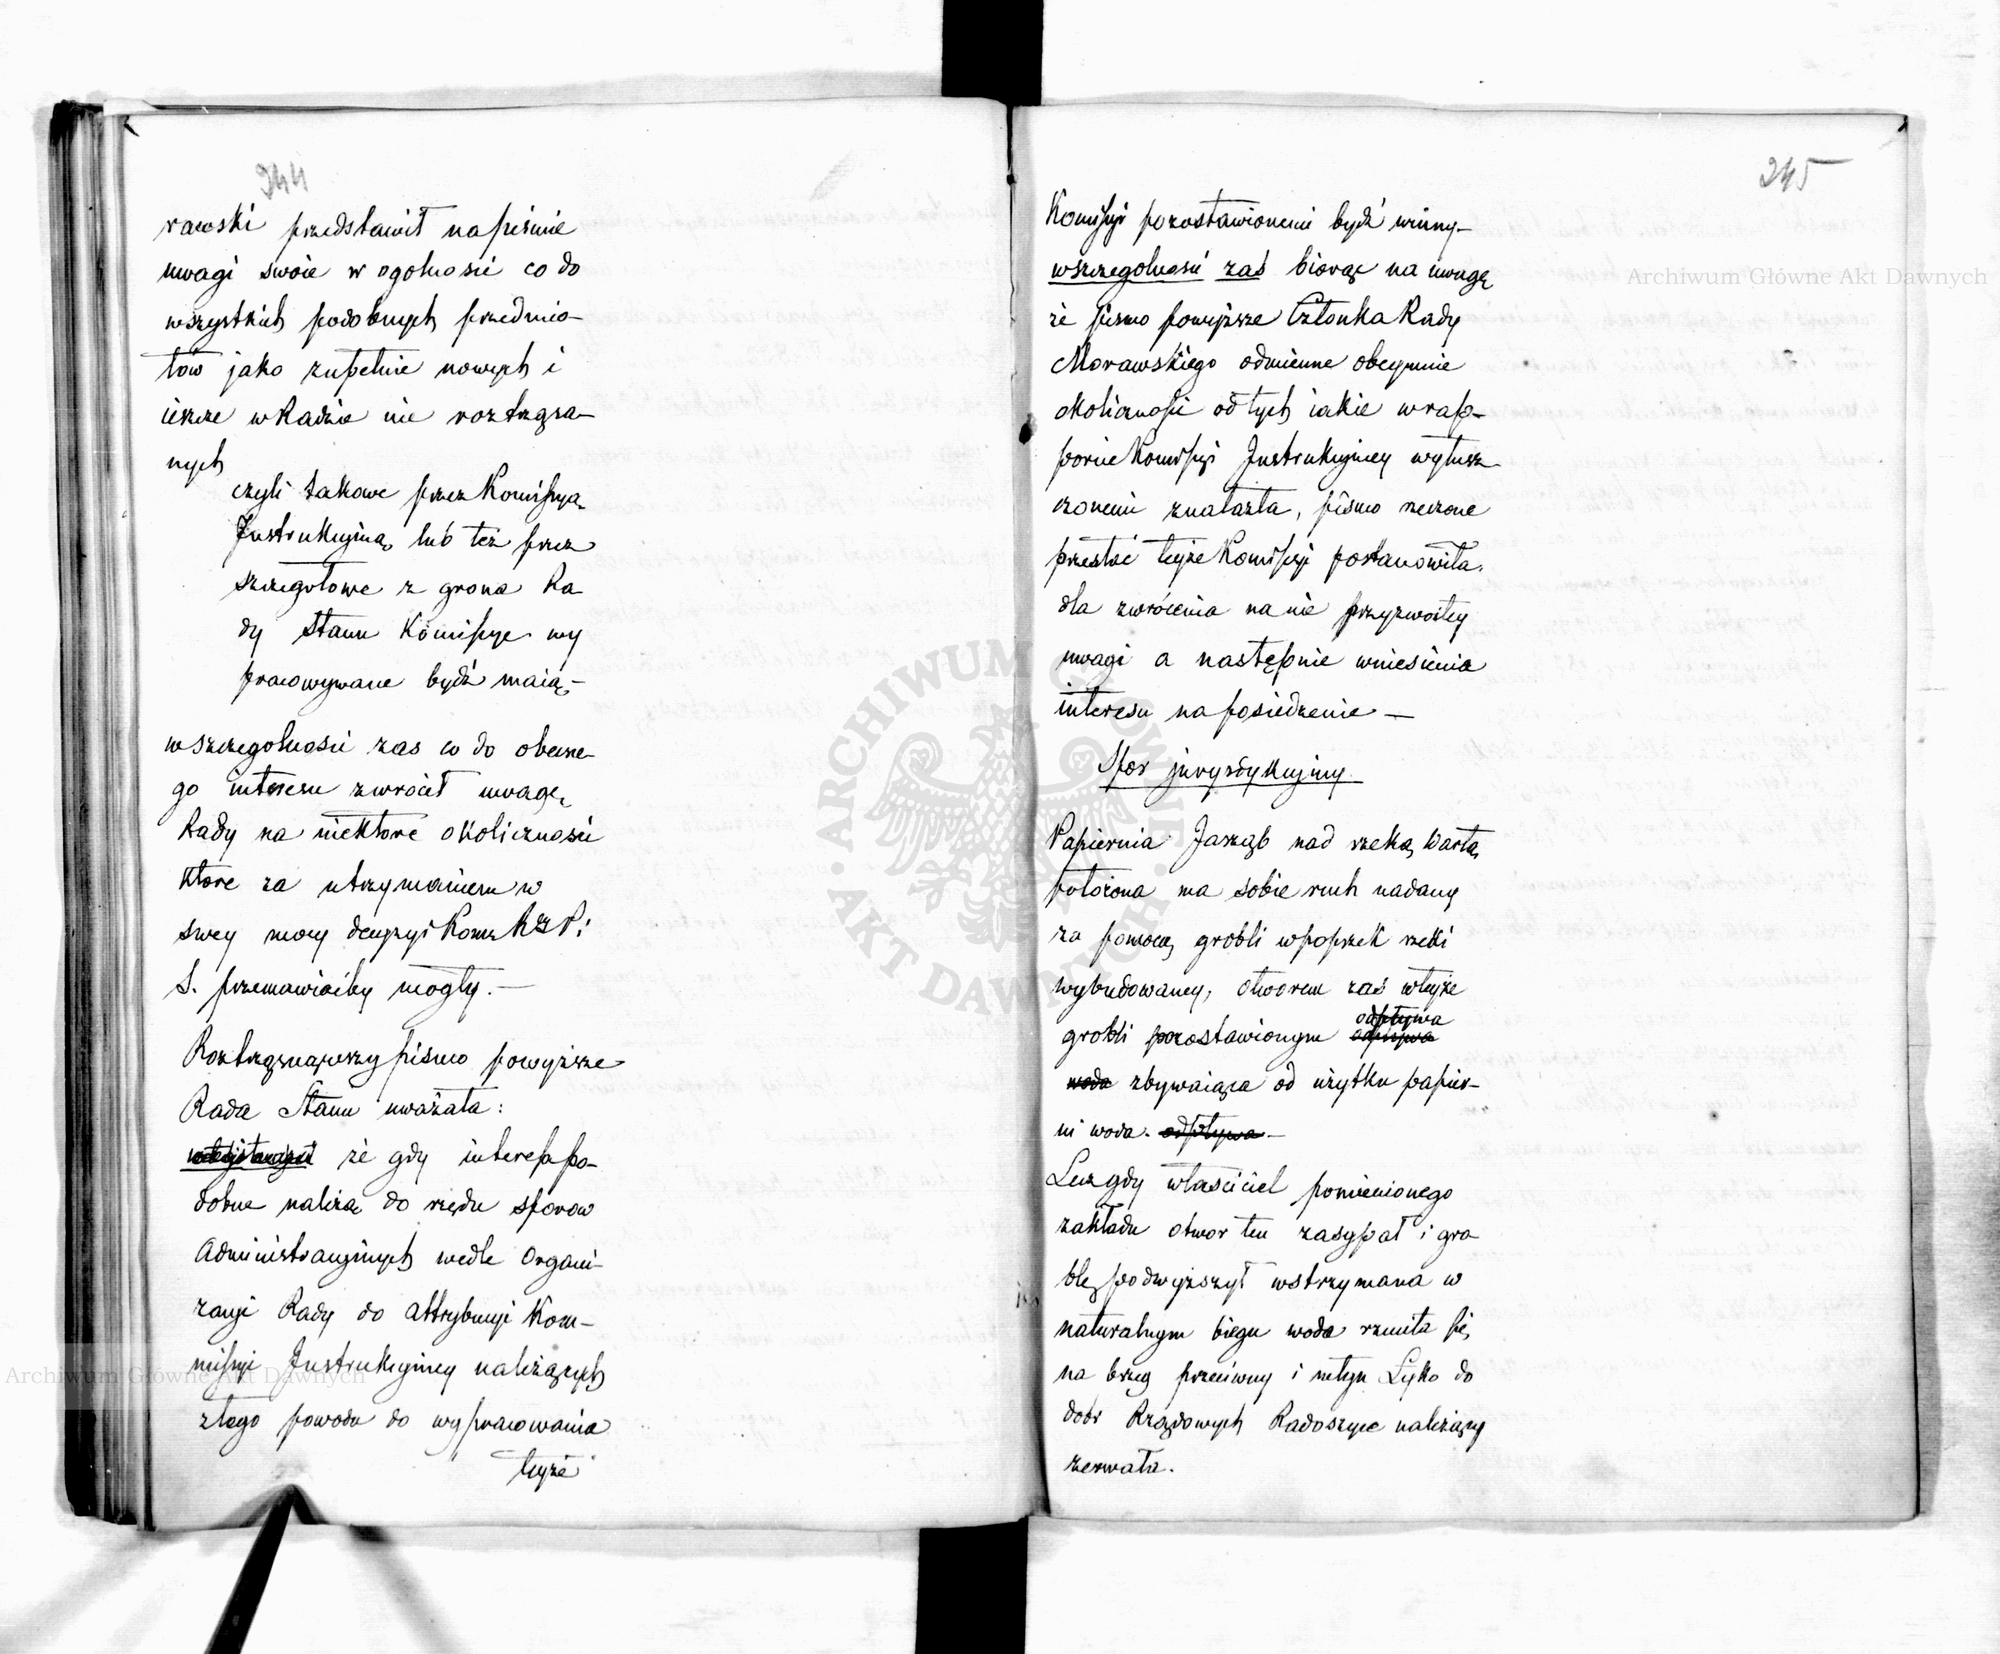 244
rawski przedstawił na piśmie
uwagi swoie w ogolności co do
wszystkich podobnych przedmio-
tów jako zupełnie nowych i
ieszcze w Radzie nie roztrząsa-
nych
czyli takowe przez Komissyą
Instrukcyiną lub też przez
szczegołowe z grona Ra
dy Stanu Komissye wy
pracowywane bydź maią,-
w szczegolności zas co do obecne-
go interesu zwrócił uwagę
Rady na niektore okoliczności
ktore za utrzymaniem w
swey mocy decyzyi Kom: R
S. przemawiaćby mogły.-
Roztrząsnąwszy pismo powyższe
Rada Stanu uważała:
że gdy interessa po-
dobne należą do rzędu sporow
Administracyinych wedle Organi-
zacyi Rady do attrybucyi Kom-
missyi Instrukcyiney należących
z tego powodu do wypracowania
teyże
245
Komissyi pozostawionemi bydź winny-
w szczególności zaś biorąc na uwagę
że pismo powyższe Członka Rady
Morawskiego odmienne obeymuie
okoliczności od tych iakie w rap-
porcie Komissyi Instrukcyiney wyłusz-
czonemi znalazła, pismo rzeczone
przesłać teyże Komissyi postanowiła.
dla zwrócenia na nie przyzwoitey
uwagi a następnie wniesienia
interesu na posiedzenie —
Spor jurysdykcyiny
Papiernia Jarząb nad rzeką Wartą
położona ma sobie ruch nadany
za pomocą grobli w poprzek rzeki
wybudowaney, otworem zaś w teyże
odpływa
grobli pozostawionym odpływa
woda zbywaiąca od użytku papier-
ni woda. odpływa-
Lecz gdy właściciel pomienionego
zakładu otwor ten zasypał i gro
blę podwyższył wstrzymana w
naturalnym biegu woda rzuciła się
na brzeg przeciwny i młyn Łyko do
dobr Rządowych Radoszyce należący
zerwała.
Archiwum Główne Akt Dawnych
Archiwum Główne Akt Dawnych
ARCHIWUM GŁÓWNE · AKT DAWNYCH ·